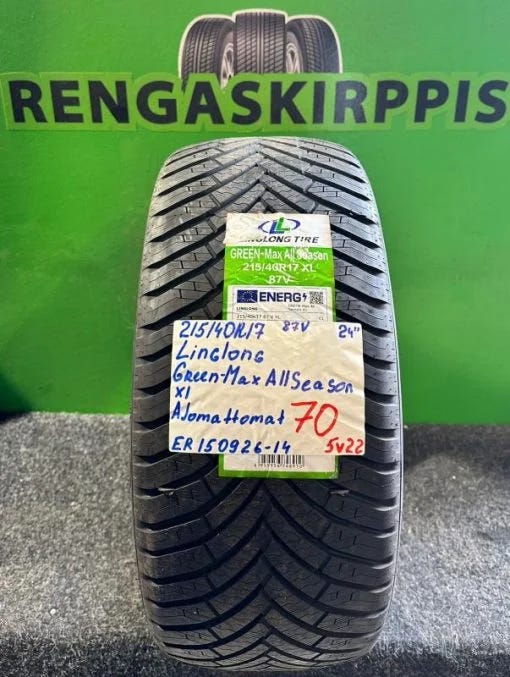 RENGASKIRPPIS
LINGLONG TIRE
GREEN-Max All Season
215/40R17 XL
87V
ENERG
LINGLONG
215/40R17 87V XL
C1
215/40R17 87V 24"
Linglong
Green-Max AllSeason
Xl
Ajomattomat 70
ER150926-14 5v22